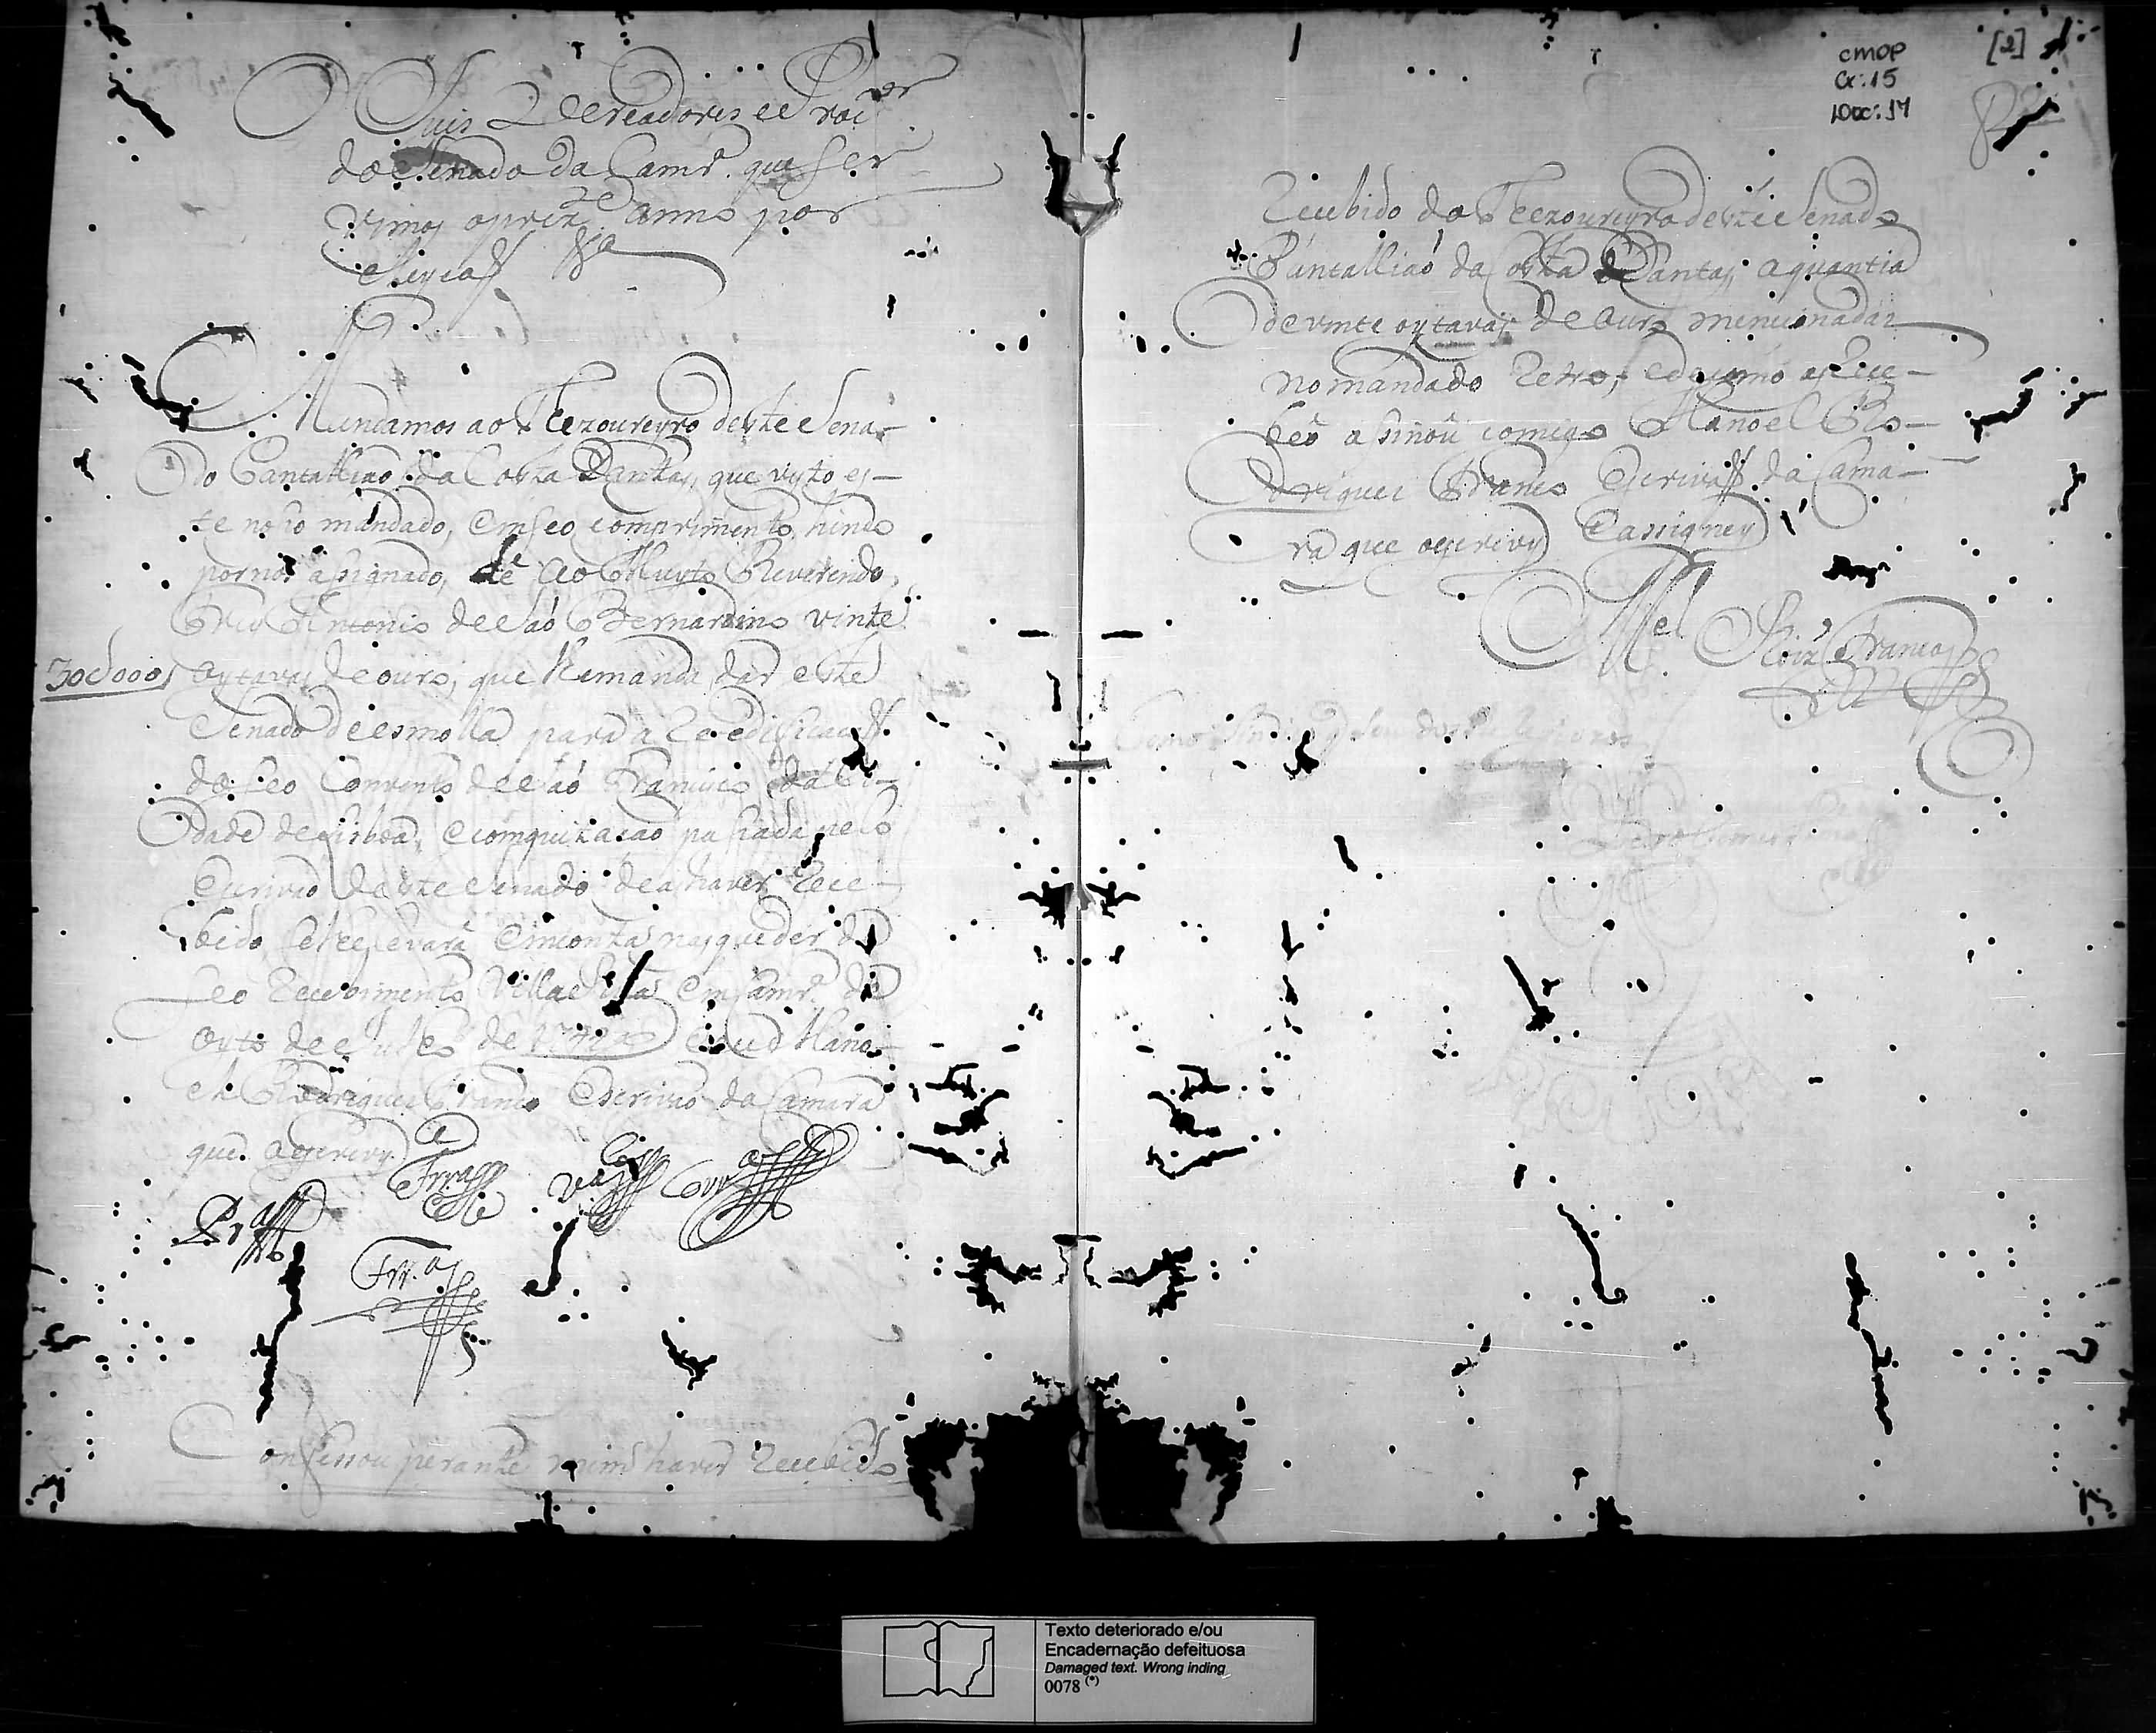 O Juis Vereadores e Proc.or
do Senado da Camr.a que ser
vimos o prez.te anno por
Eleycaõ &a
Mandamos ao Thezoureyro deste Sena-
do Pantalliaõ da Costa Dantas, que visto es-
te nosso mandado, em seo comprimento, hindo
por nos assignado, dê ao Muyto Reverendo,
Frey Antonio de Saó Bernardino vinte
30d000 oytavas de ouro, que lhe manda dar este
Senado de esmolla para a Reedificacaõ
do seo Convento de Saó Francisco da Ci-
dade de Lisboa, e com quitacaó passada pelo
Escrivaó deste Senado de as haver Rece-
bido se lhe levará em contas nas que der de
seo Recebimento Villa Rica em Camr.a de
oyto de Julho de 174 e eu Mano-
el Rodrigues Franco Escrivaó da Camara
que o escrevy
Frr.a Vas
P.ra
Frr.a
Confessou perante mim haver Recebido
cmop
Cx: 15
Doc: 17
[2]
Recebido do Thezoureyro deste Senado
Pantalliaó da Costa Dantas, a quantia
de vinte oytavas de Ouro mencionadas
no mandado Retro, e de como as Rece-
beo assinoû comigo Manoel Ro-
drigues Franco Escrivaõ da Cama-
ra que o escrivy E assigney
M.el Roiz' Franco
Texto deteriorado e/ou
Encadernação defeituosa
Damaged text. Wrong inding
0078 (*)